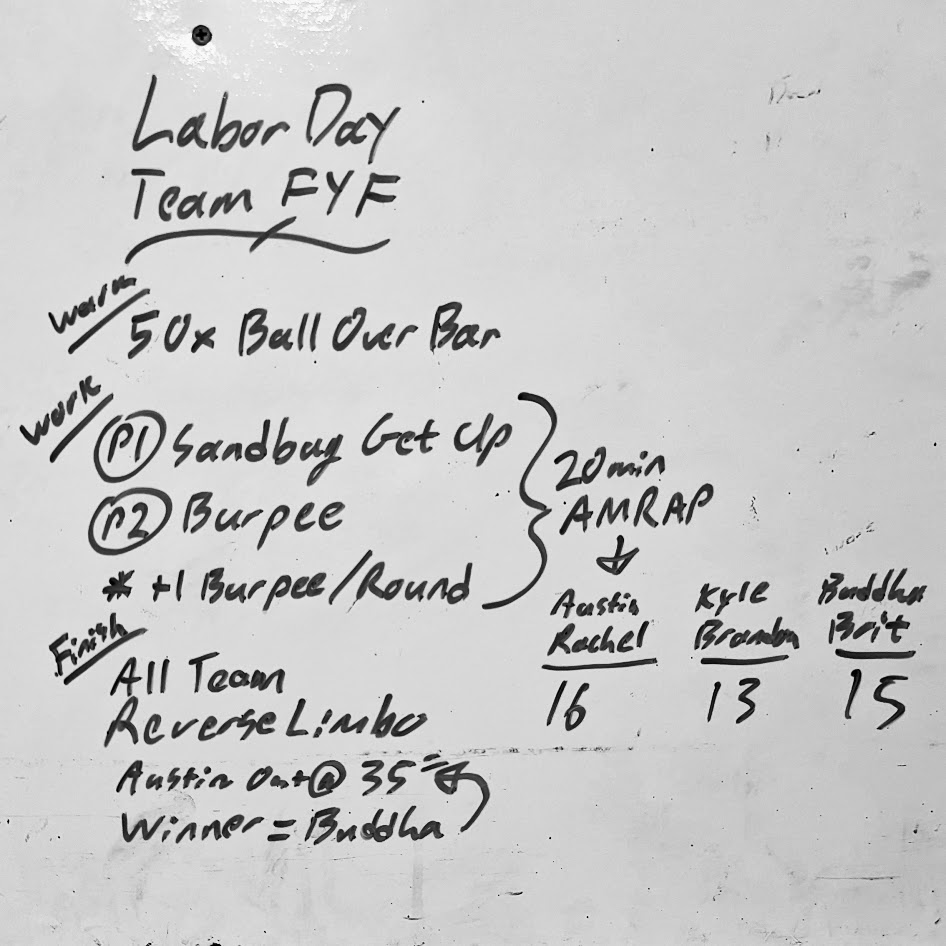 Labor Day
Team FYF
Warm
50x Ball Over Bar
Work
P1 Sandbag Get Up
P2 Burpee
* +1 Burpee/Round
20min
AMRAP
↓
Austin
Rachel
16
Kyle
Brandon
13
Buddha
Brit
15
Finish
All Team
Reverse Limbo
Austin Out@ 35"
Winner = Buddha